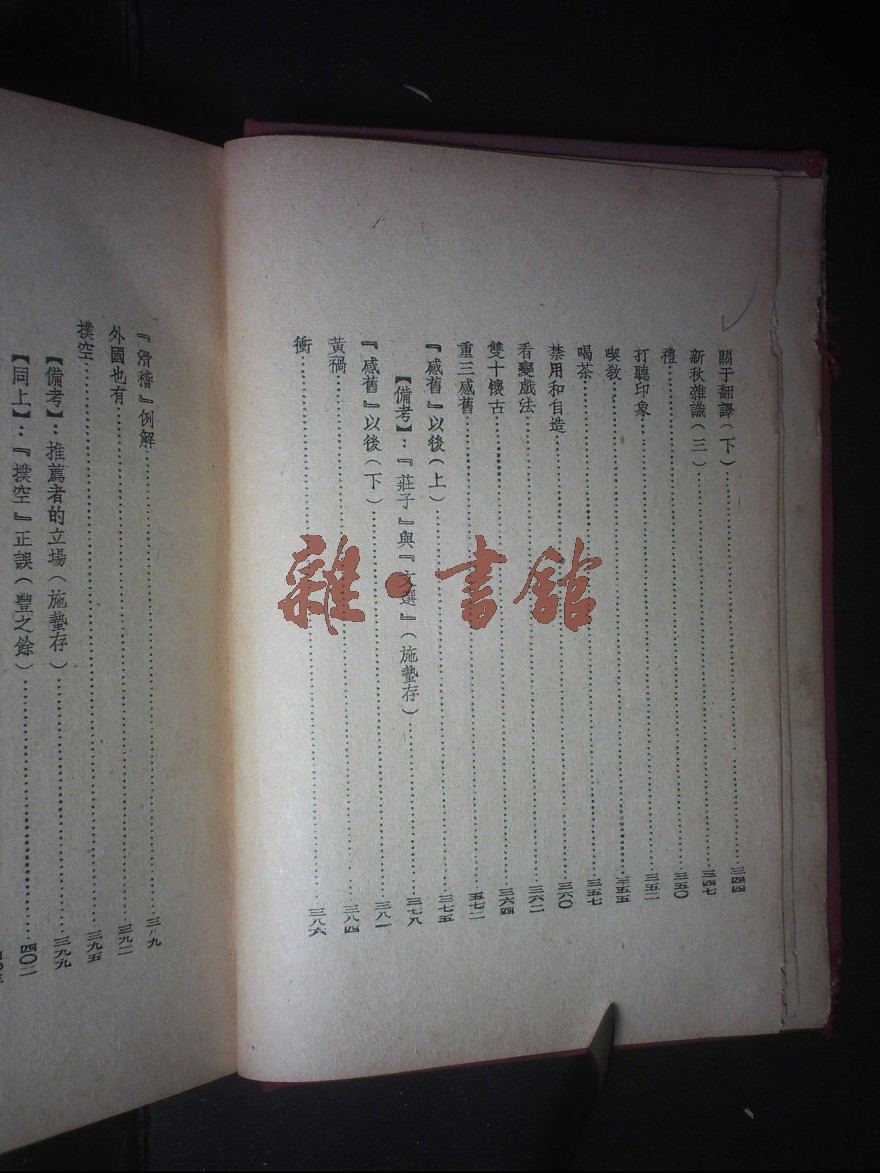 關于翻譯(下)……三四四
新秋雜識(三)……三四七
禮……三五〇
打聽印象……三五二
喫敎……三五五
喝茶……三五七
禁用和自造……三六〇
看變戲法……三六二
雙十懷古……三六四
重三感舊……五七二
『感舊』以後(上)……三七五
【備考】:『莊子』與『文選』(施蟄存)……三七八
『感舊』以後(下)……三八一
黃禍……三八四
衝……三八六
『滑稽』例解……三八九
外國也有……三九二
撲空……三九五
【備考】:推薦者的立場(施蟄存)……三九九
【同上】:『撲空』正誤(豐之餘)……四〇二
雜·書館